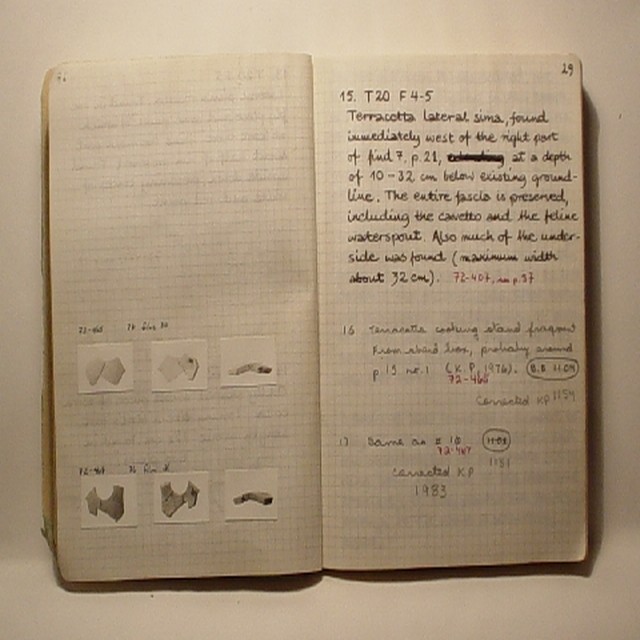 72-468
72-467
29
15. T20 F4-5
Terracotta lateral sima, found
immediately west of the right part
of find 7, p. 21, at a depth
of 10-32 cm below existing ground-
line. The entire fascia is preserved,
including the cavetto and the feline
waterspout. Also much of the under-
side was found (maximum width
about 32 cm). 72-407, p. 37
16 Terracotta cooking stand fragment
From box, probably around
p 19 nr. 1 (K.P. 1976).
72-468
Corrected KP
17 Same as # 16
72-467
Corrected KP
1983